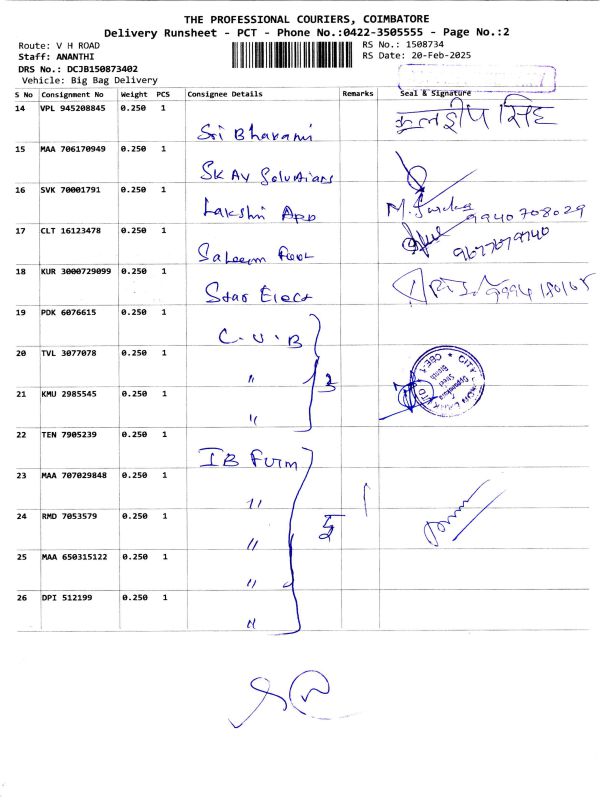 THE PROFESSIONAL COURIERS, COIMBATORE
Delivery Runsheet - PCT - Phone No.:0422-3505555 - Page No.:2
Route: V H ROAD
RS No.: 1508734
Staff: ANANTHI
RS Date: 20-Feb-2025
DRS No.: DCJB150873402
Vehicle: Big Bag Delivery
S No Consignment No Weight PCS Consignee Details Remarks Seal & Signature
14 VPL 945208845 0.250 1
Sri Bhavani कुलदीप सिंह
15 MAA 706170949 0.250 1
SK AV Solutions
16 SVK 70001791 0.250 1
Lakshmi App 9940708029
17 CLT 16123478 0.250 1
Saleem
18 KUR 3000729099 0.250 1
Star Elect
19 PDK 6076615 0.250 1
C.U.B
20 TVL 3077078 0.250 1
" 3
21 KMU 2985545 0.250 1
"
22 TEN 7905239 0.250 1
IB Furn
23 MAA 707029848 0.250 1
"
24 RMD 7053579 0.250 1
" 5
25 MAA 650315122 0.250 1
"
26 DPI 512199 0.250 1
"